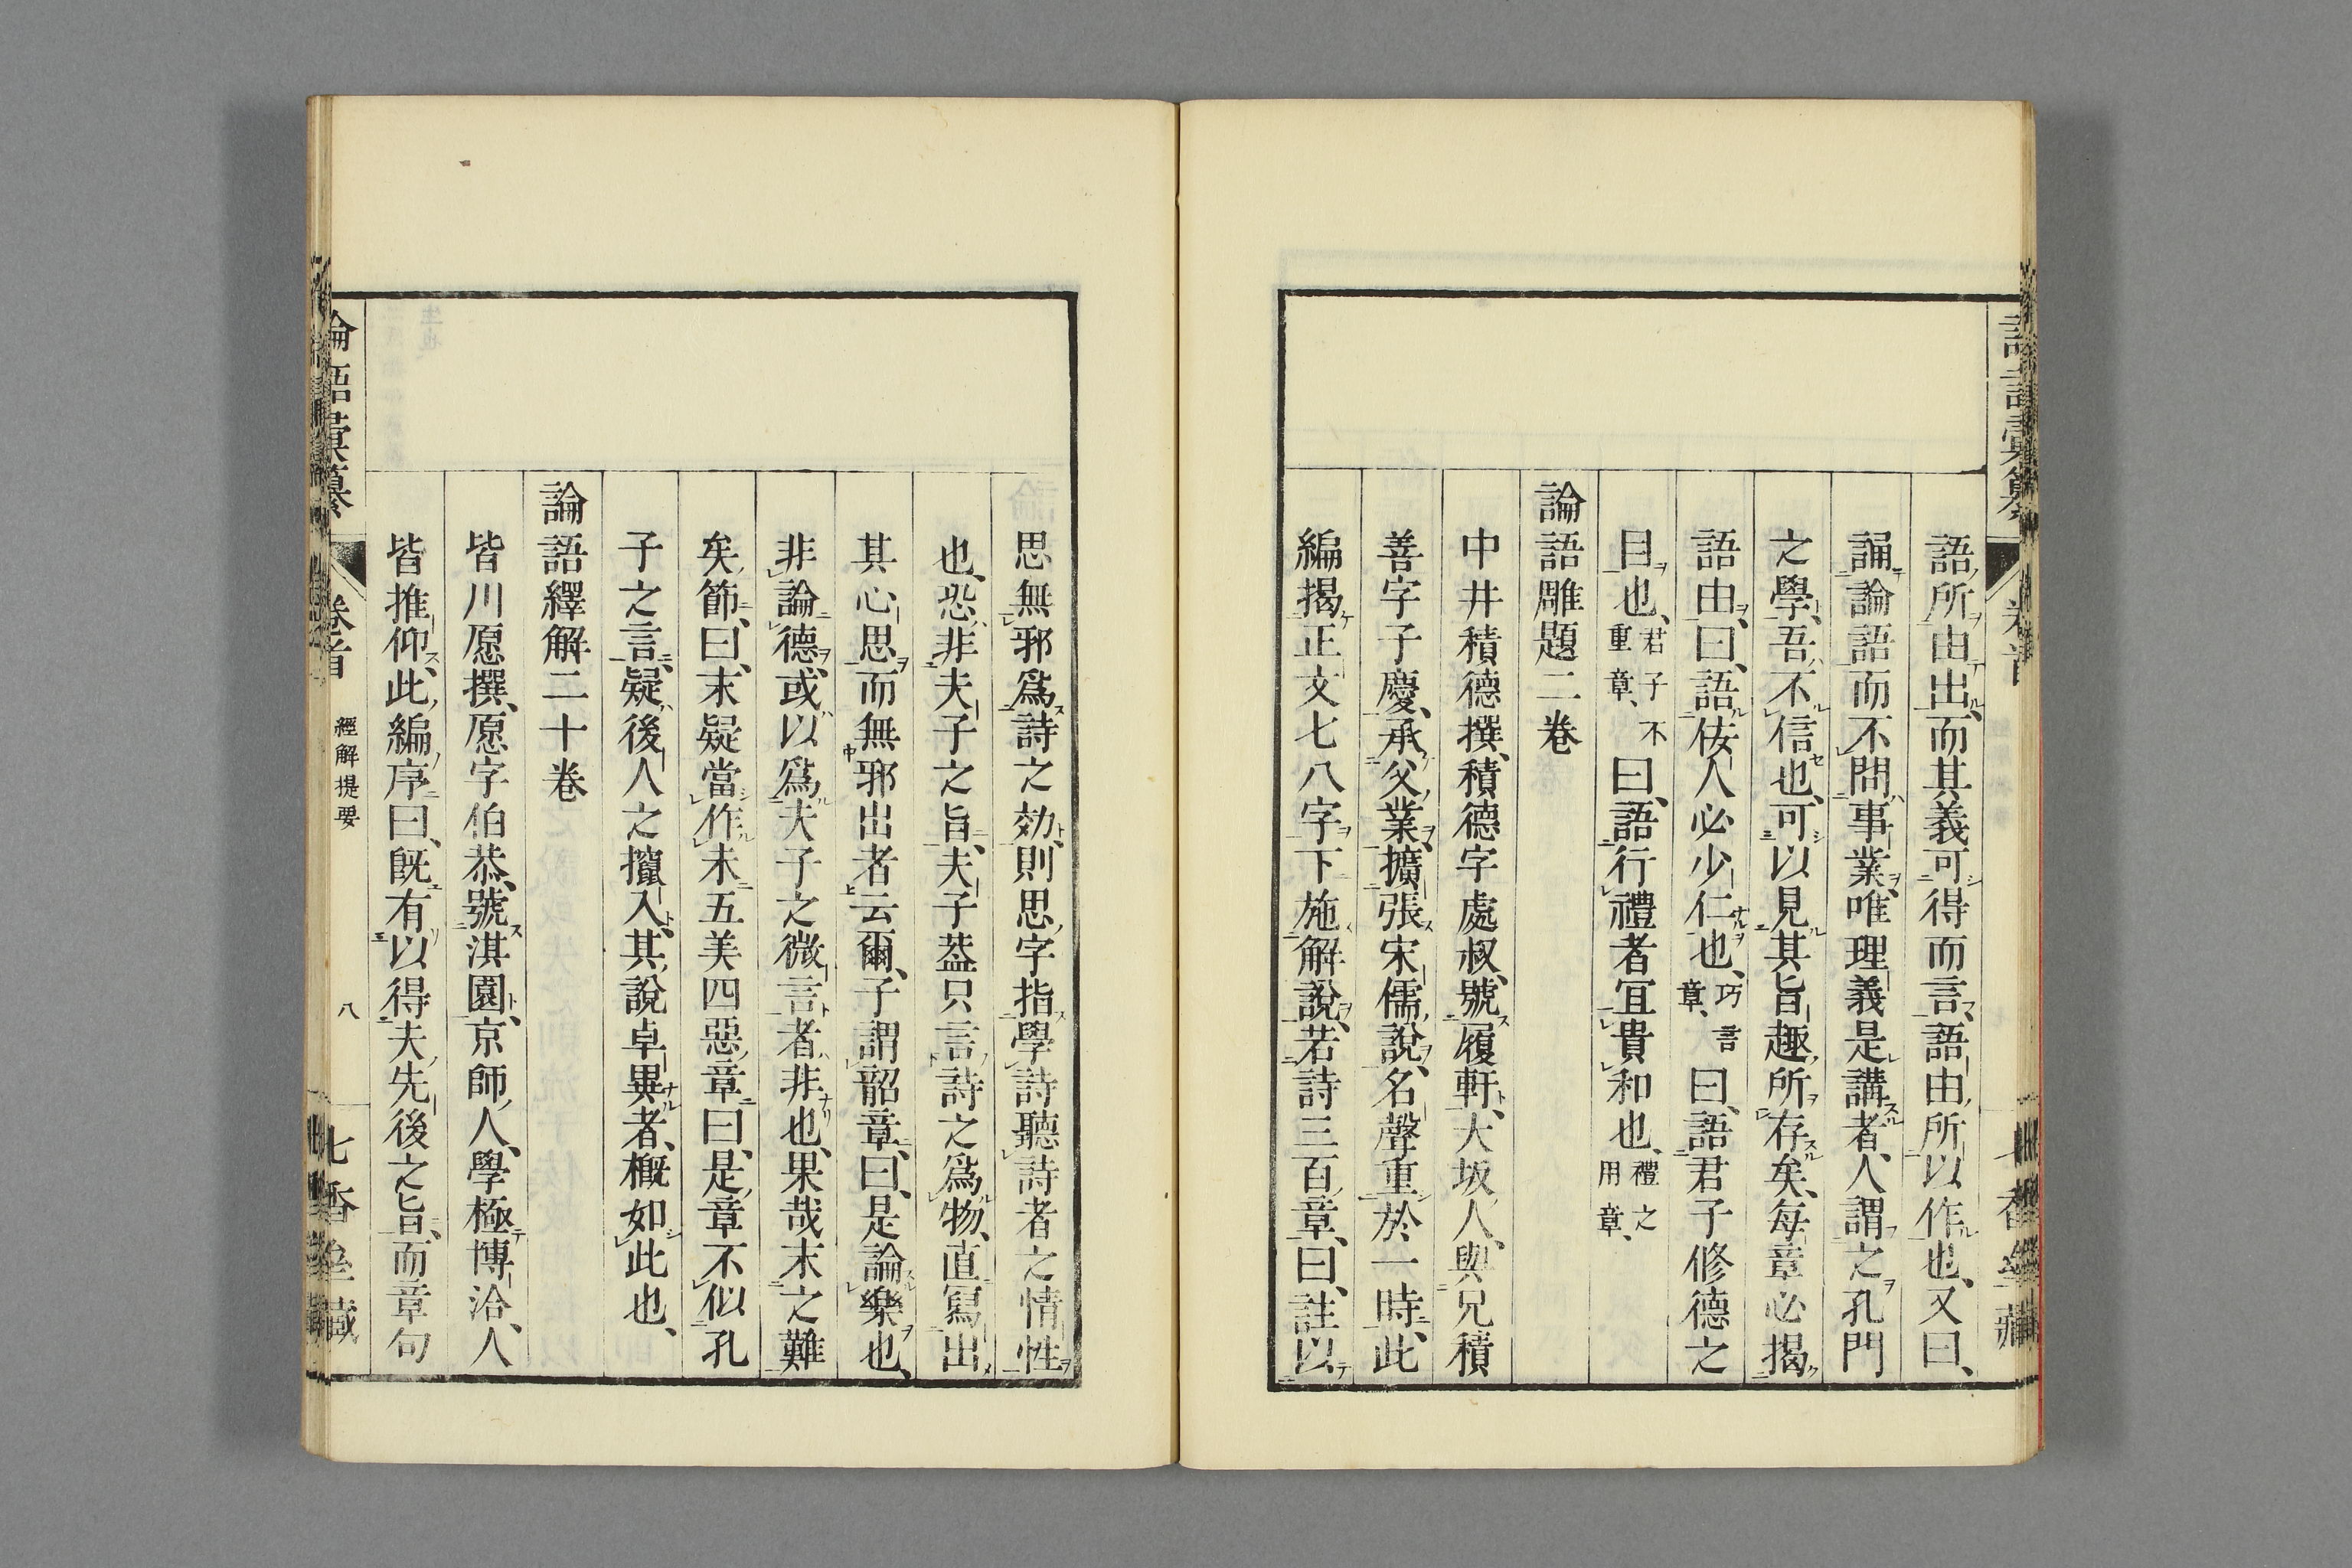 語所由出、而其義可得而言、語由所以作也、又曰、
誦論語而不問事業、唯理義是講者、人謂之孔門
之學、吾不信也、可以見其旨趣所存矣、每章必揭
語由、曰、語佞人必少仁也、巧言章、曰、語君子修德之
目也、君子不重章、曰、語行禮者宜貴和也、禮之用章、
論語雕題二卷
中井積德撰、積德字處叔、號履軒、大坂人、與兄積
善字子慶、承父業、擴張宋儒說、名聲重於一時、此
編揭正文七八字、下施解說、若詩三百章、曰、註以
思無邪爲詩之効、則思字指學詩聽詩者之情性
也、恐非夫子之旨、夫子葢只言詩之爲物、直寫出
其心思而無邪出者云爾、子謂韶章、曰、是論樂也、
非論德、或以爲夫子之微言者、非也、果哉末之難
矣節、曰、末疑當作未、五美四惡章、曰、是章不似孔
子之言、疑後人之攛入、其說卓異者、概如此也、
論語繹解二十卷
皆川愿撰、愿字伯恭、號淇園、京師人、學極博洽、人
皆推仰、此編序曰、既有以得夫先後之旨、而章句
論語彙纂 卷首 經解提要 八 七香堂藏